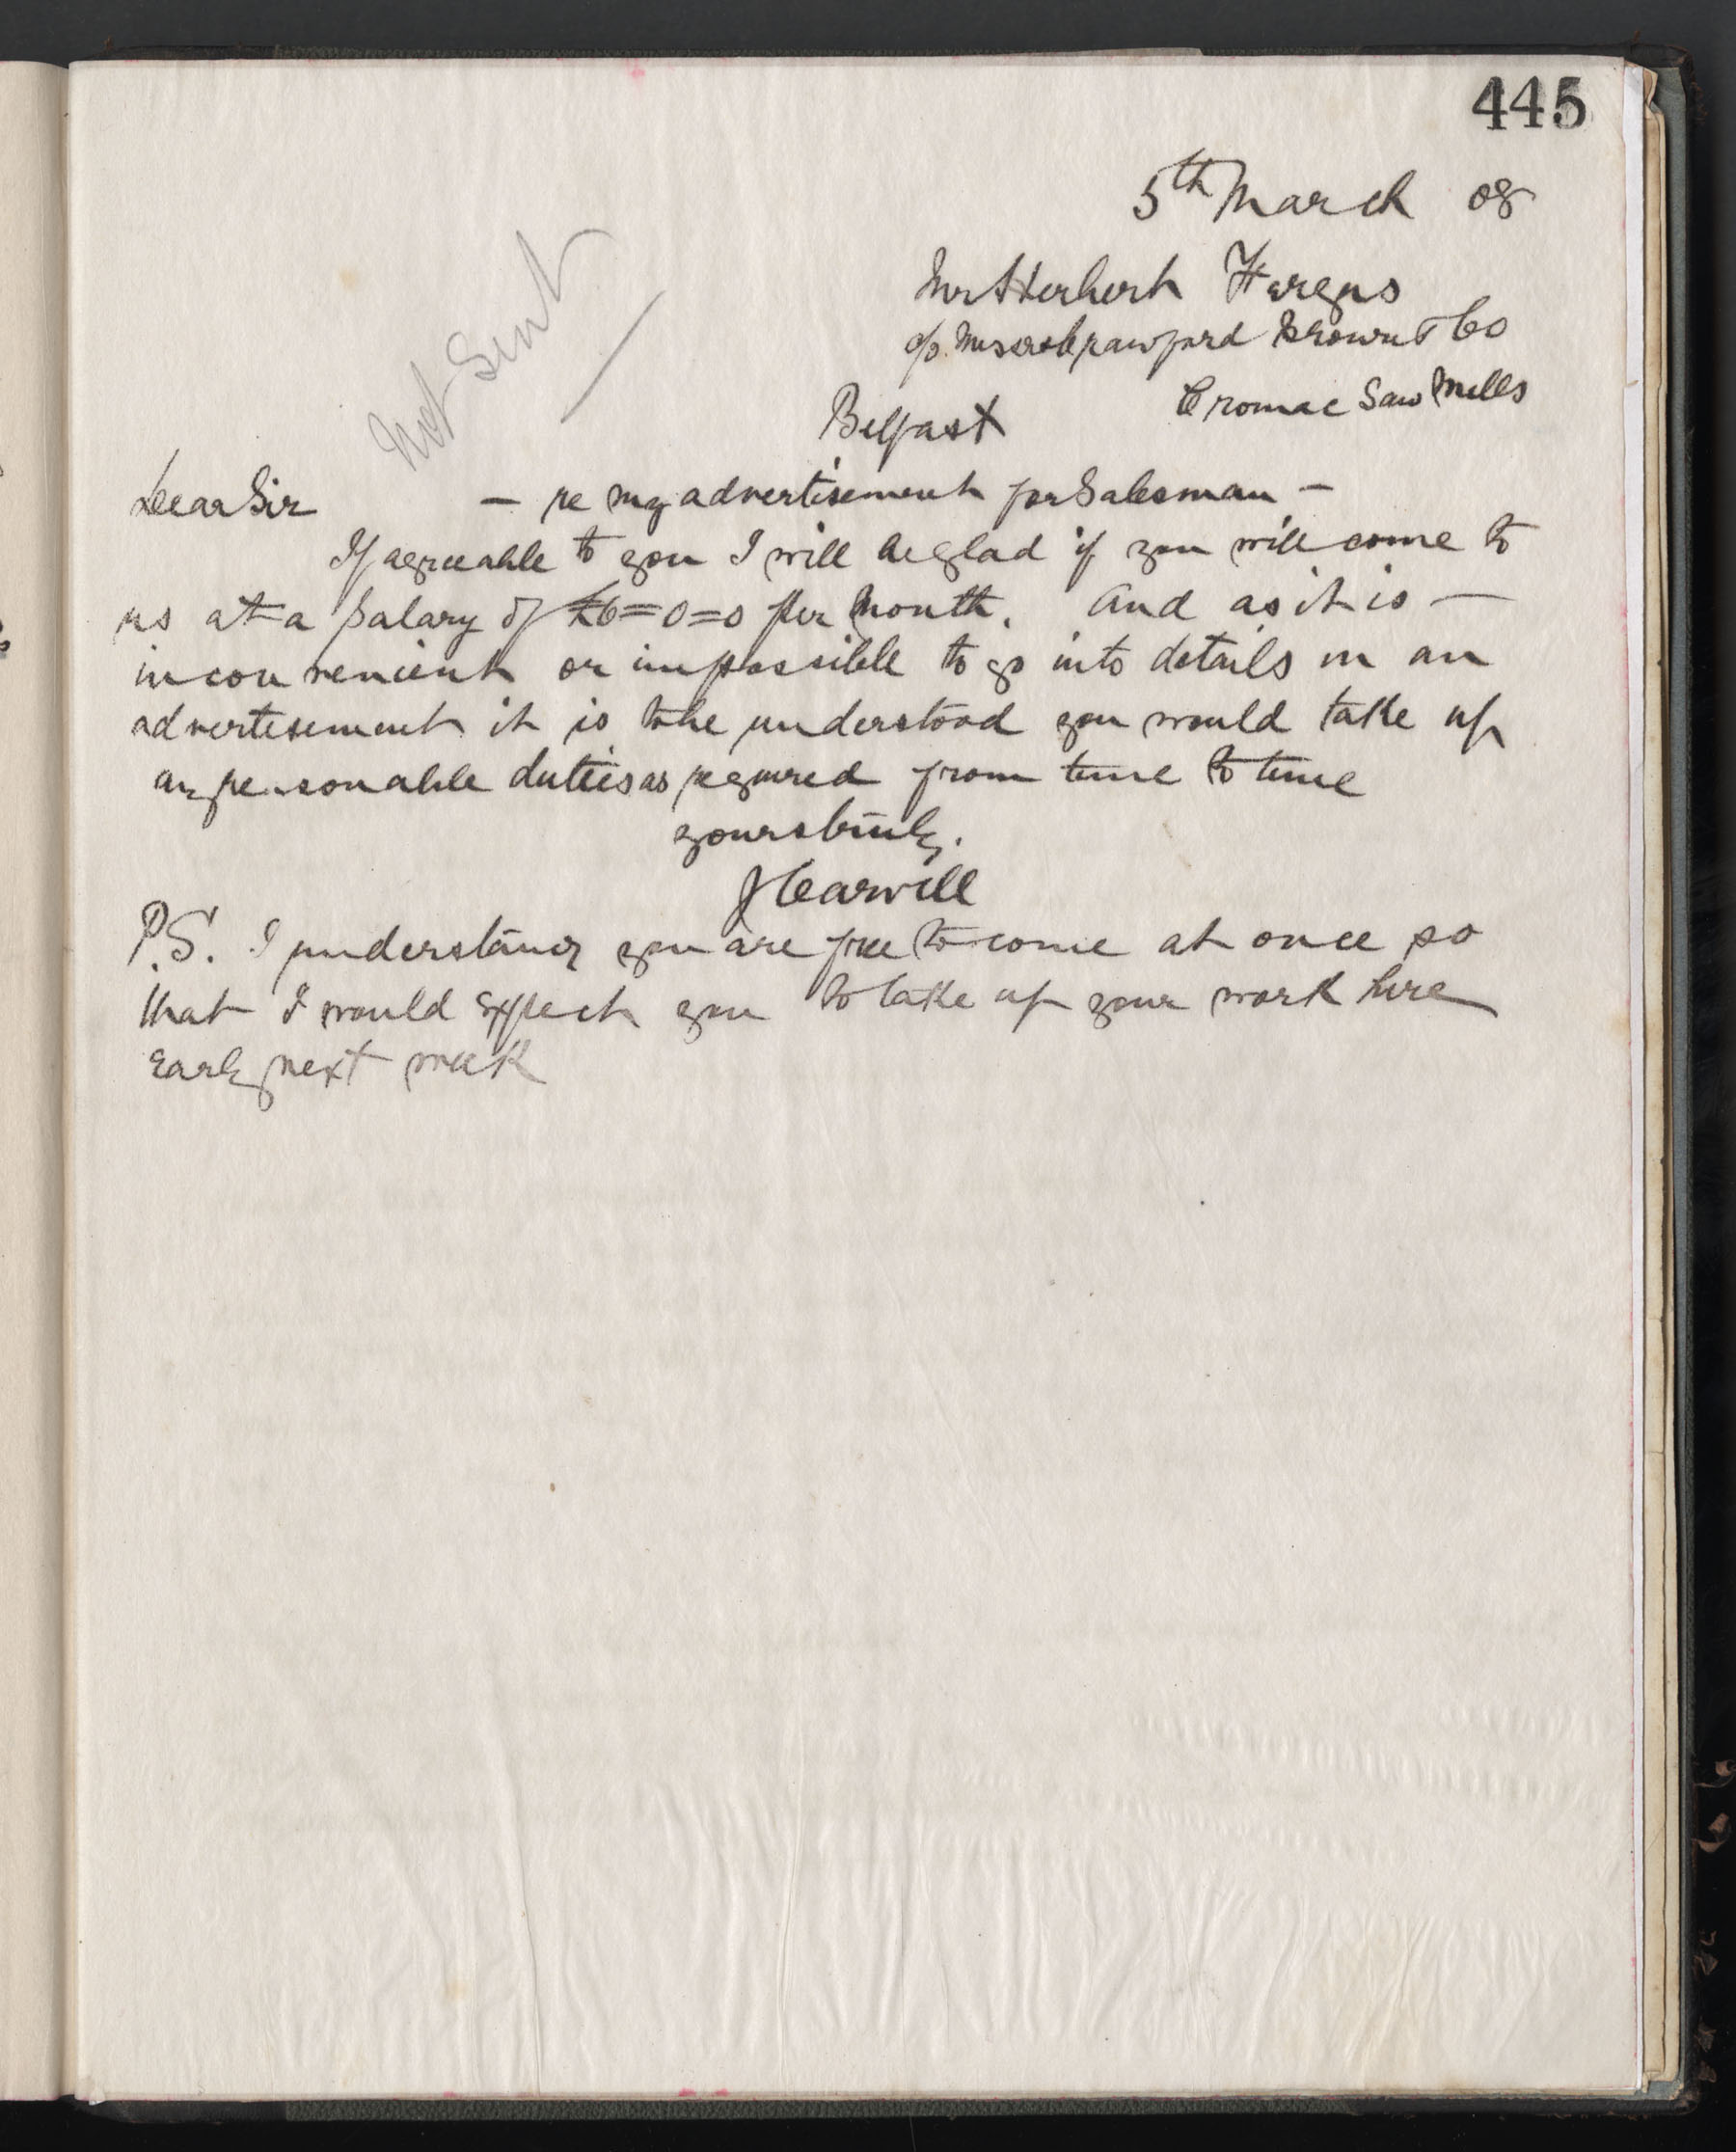 445
5th March 08
Mr Herbert Fergus
c/o. Messrs Crawford Brown & Co
Cromac Saw Mills
Belfast
Not Sent
Dear Sir - re my advertisement for Salesman -
If agreeable to you I will be glad if you will come to
us at a Salary of £6=0=0 per Month. And as it is -
inconvenient or impossible to go into details in an
advertisement it is to be understood you would take up
any reasonable duties as required from time to time
yours truly.
J Carvill
P.S. I understand you are free to come at once so
that I would expect you to take up your work here
Early next week